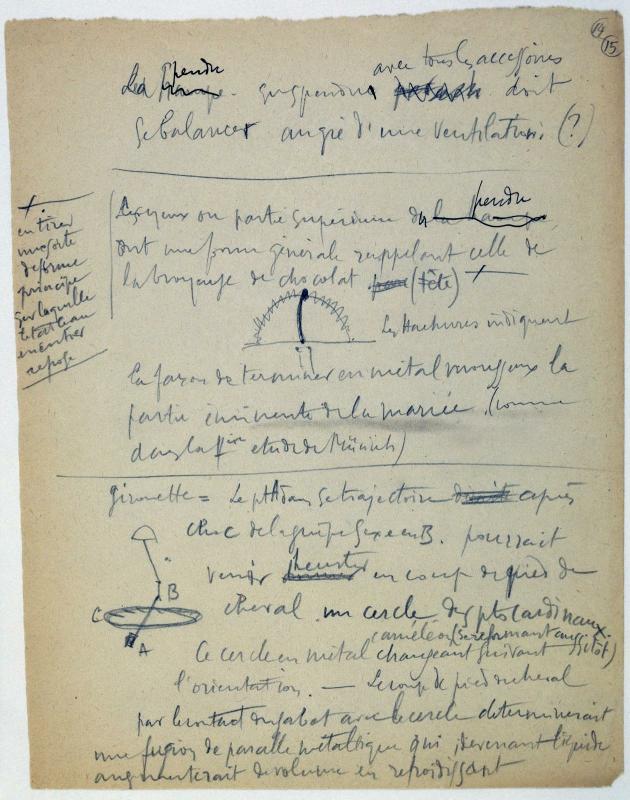 14
15
avec tous les accessoires
pendu
Le suspendu doit
se balancer au gré d'une ventilation. (?)
+.
en tirer
une sorte
de forme
principe
sur laquelle
le tableau
en entier
repose
pendu
Les yeux ou partie supérieure du
ont une forme générale rappelant celle de
la broyeuse de chocolat (tête) +
Les Hachures indiquent
la façon de terminer en métal
partie éminente de la mariée. (comme
dans la 1ère étude de Munich)
girouette = Le ptt dans sa trajectoire après
choc de la guêpe sexe en B. pourrait
venir heurter en coup de pied de
B
cheval un cercle des pts cardinaux.
C
A
caméléon (se reformant aussitôt)
Ce cercle en métal changeant suivant
l'orientation. — Le coup de pied du cheval
par le contact du sabot avec le cercle déterminerait
une fusion de parcelle métallique qui, devenant liquide
augmenterait de volume en refroidissant